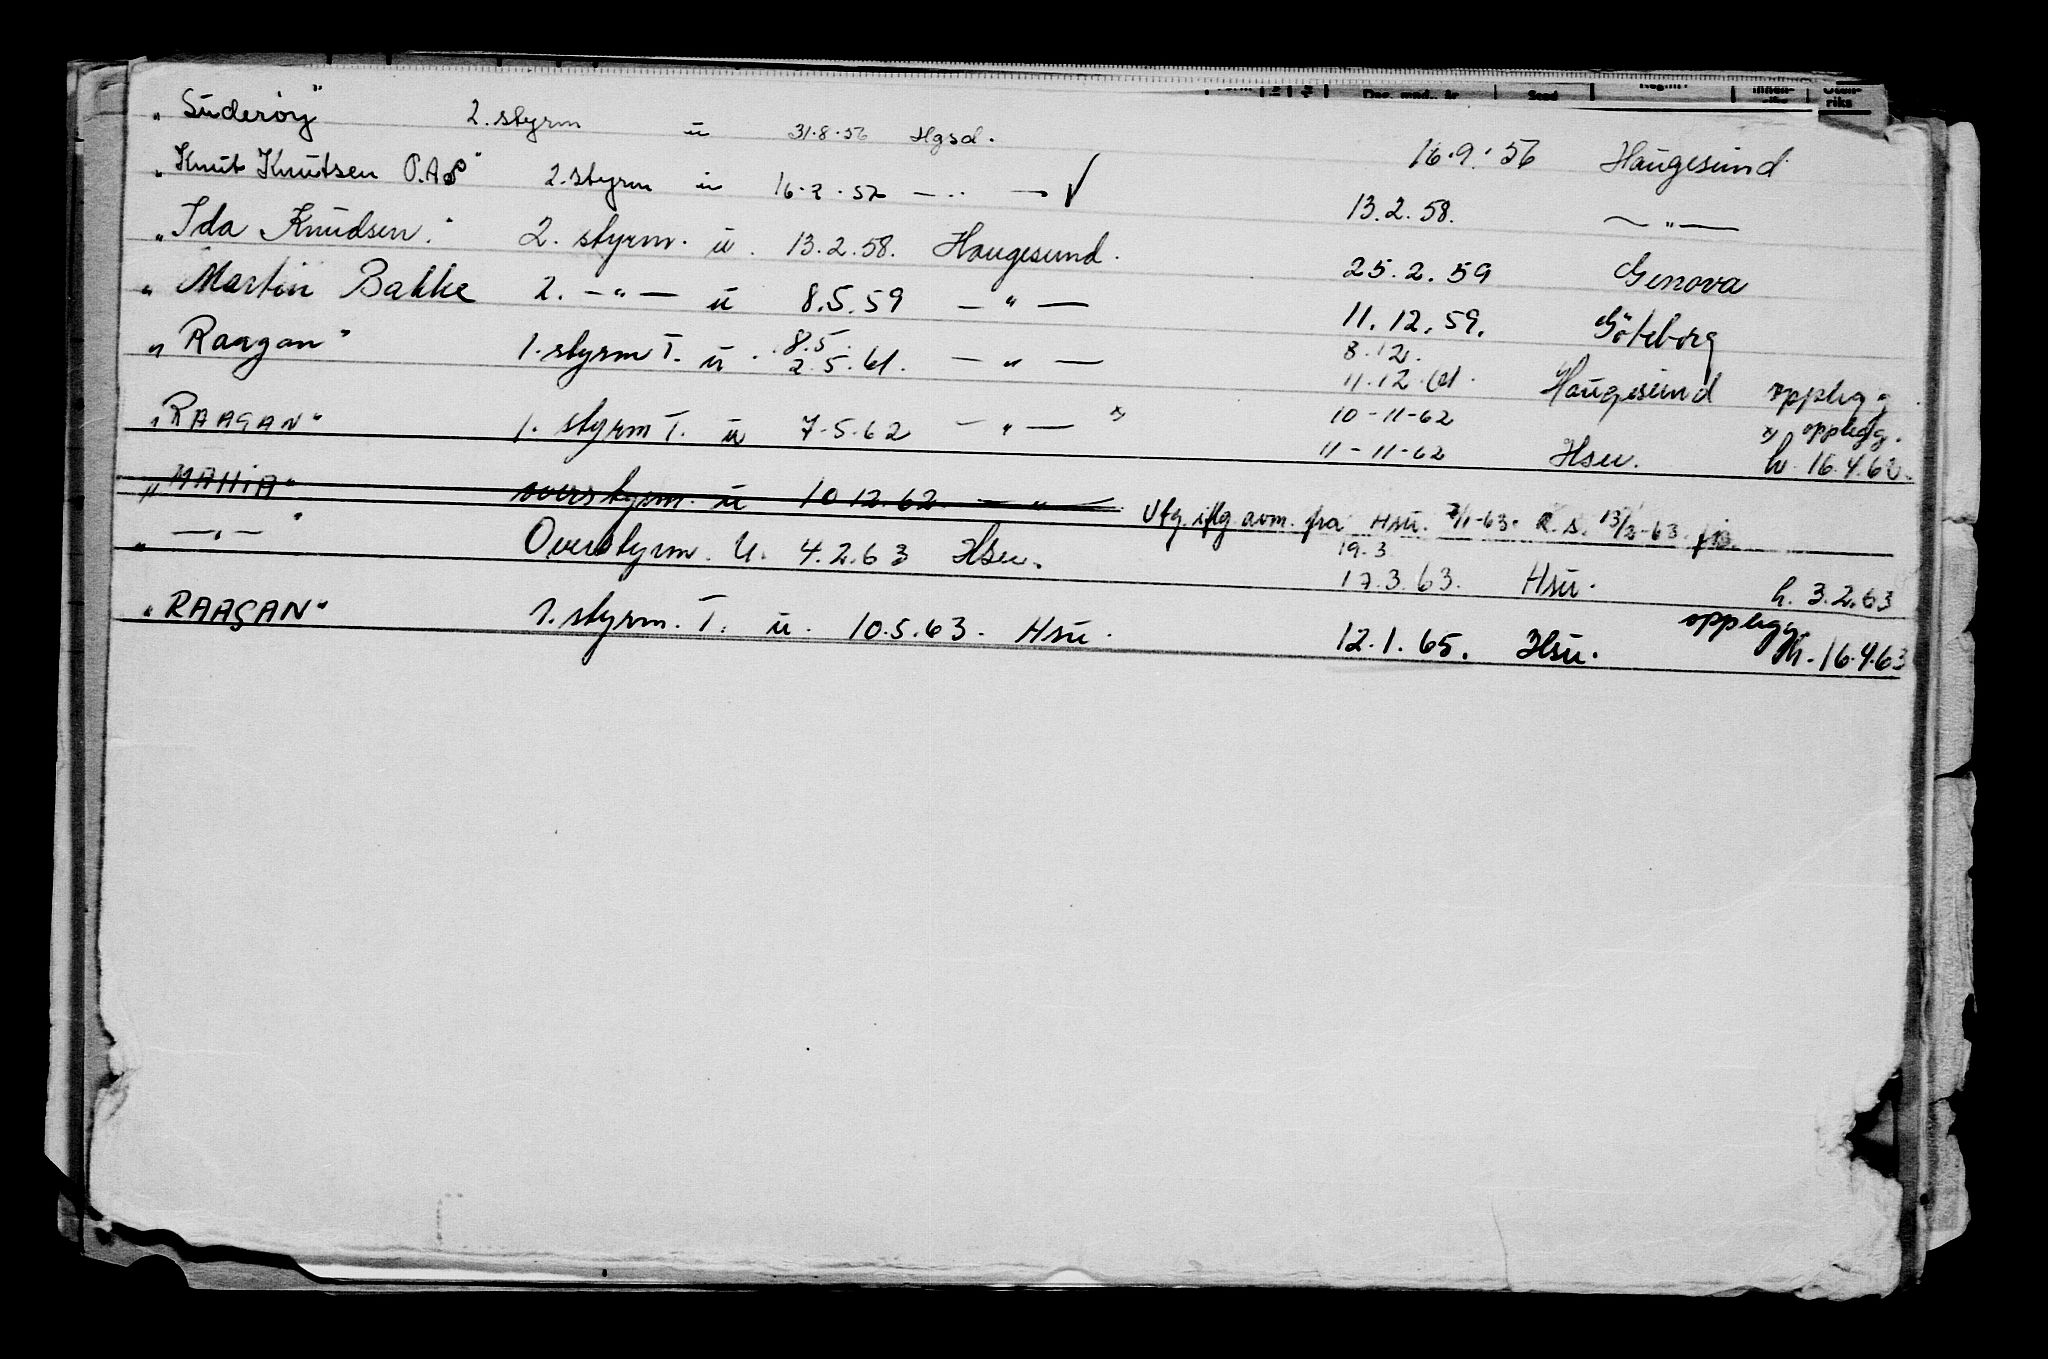 Dag, mnd., år Sted innen-riks Uten-riks
„Suderøy" 2. styrm u 31.8.56 Hgsd. 16.9.56 Haugesund
„Knut Knutsen O.A.S" 2. styrm u 16.2.57 — „ — √ 13.2.58. — „ —
„Ida Knudsen." 2. styrm. u. 13.2.58. Haugesund. 25.2.59 Genova
„Martin Bakke 2. — „ — u 8.5.59 — „ — 11.12.59. Göteborg
„Raagan" 1. styrm T. u. 8.5. 2.5.61. — „ — 8.12. 11.12.61. Haugesund opplegg
„RAAGAN" 1. styrm T. u 7-5.62 — „ — x) 10-11-62 x) opplegg.
11-11-62 Hsu. h. 16.4.62.
„MAHIA" overstyrm. u 10 12.62. — „ — Utg. iflg. avm. fra Hsu. 7/1-63. R.S. 13/2-63
„ — „ — " Overstyrm. U. 4.2.63 Hsu. 19.3 17.3.63. Hsu. h. 3.2.63
„RAAGAN" 1. styrm. T. u. 10.5.63. Hsu. 12.1.65. Hsu. opplegg h. 16.4.63